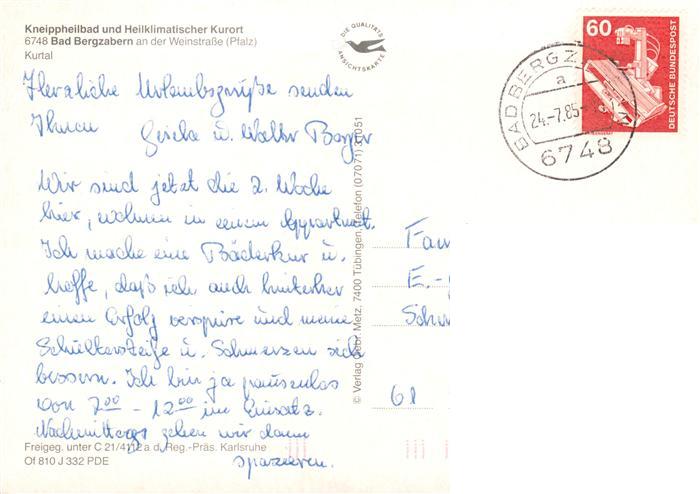 Kneippheilbad und Heilklimatischer Kurort
6748 Bad Bergzabern an der Weinstraße (Pfalz)
Kurtal
DIE QUALITÄTS
ANSICHTSKARTE
60
DEUTSCHE BUNDESPOST
BAD BERGZ
a
24.-7.85
6748
Herzliche Urlaubsgrüße senden
Ihnen Gerda u. Walter
Wir sind jetzt die 2. Woche
hier, wohnen in einem Appartment.
Ich mache eine Bäderkur u.
hoffe, daß ich auch hinterher
einen Erfolg verspüre und meine
Schultersteife u. Schmerzen sich
bessern. Ich bin ja pausenlos
von 7⁰⁰ - 12⁰⁰ im Einsatz.
Nachmittags gehen wir dann
spazieren.
Fam
E.-
Schu
61
© Verlag Gebr. Metz, 7400 Tübingen, Telefon (07071) 31051
Freigeg. unter C 21/4112 a. d. Reg.-Präs. Karlsruhe
Of 810 J 332 PDE